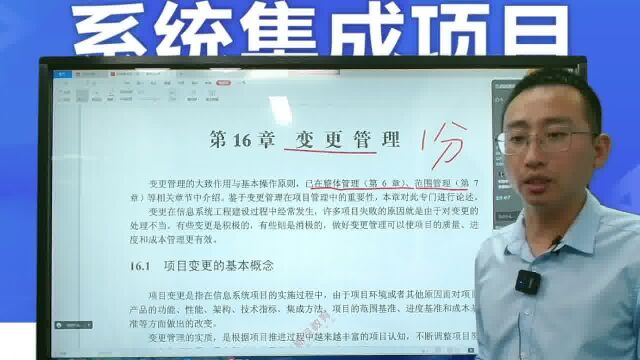 系统集成项目
第16章 变更管理
1分
变更管理的大致作用与基本操作原则，已在整体管理（第6章）、范围管理（第7
章）等相关章节中介绍。鉴于变更管理在项目管理中的重要性，本章对此专门进行论述。
变更在信息系统工程建设过程中经常发生，许多项目失败的原因就是由于对变更的
处理不当。有些变更是积极的，有些则是消极的，做好变更管理可以使项目的质量、进
度和成本管理更有效。
16.1 项目变更的基本概念
项目变更是指在信息系统项目的实施过程中，由于项目环境或者其他原因而对项
产品的功能、性能、架构、技术指标、集成方法、项目的范围基准、进度基准和成本基
准等方面做出的改变。
变更管理的实质，是根据项目推进过程中越来越丰富的项目认知，不断调整项目